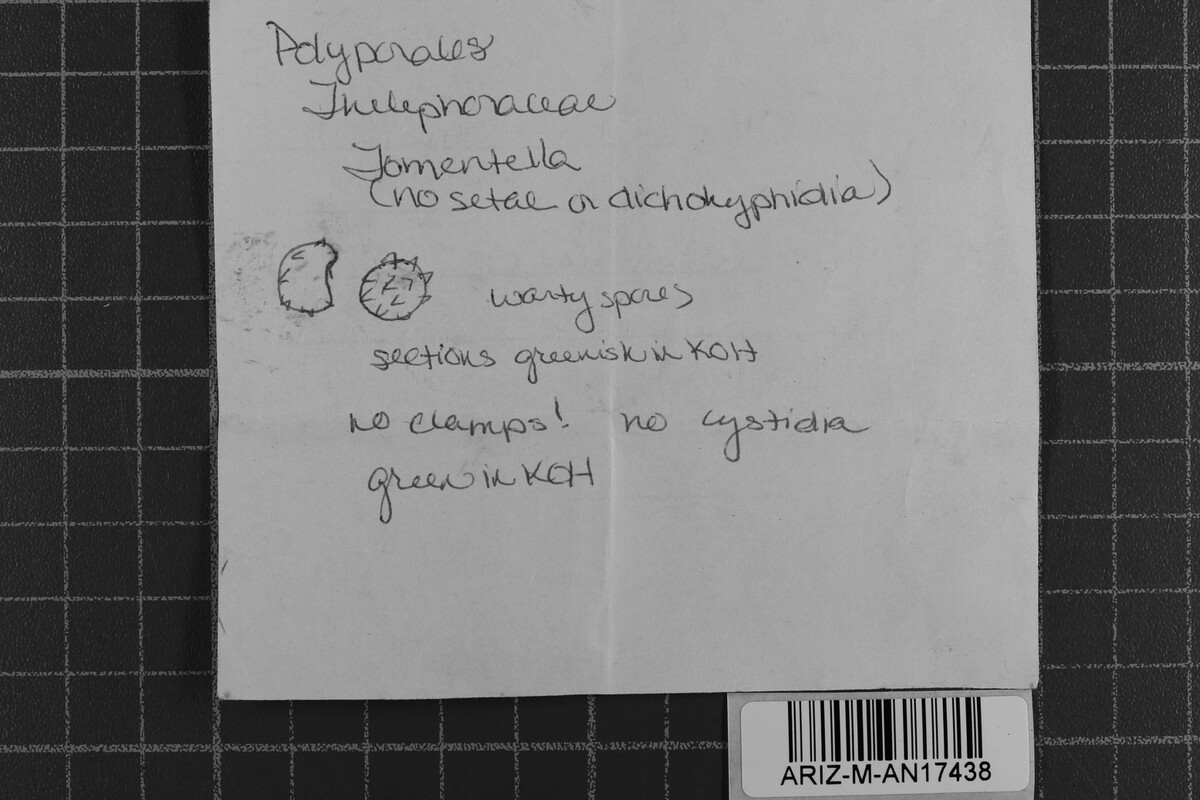 Polyporales
Thelephoraceae
Tomentella
(no setae or dichohyphidia)
warty spores
sections greenish in KOH
no clamps! no cystidia
green in KOH
ARIZ-M-AN17438